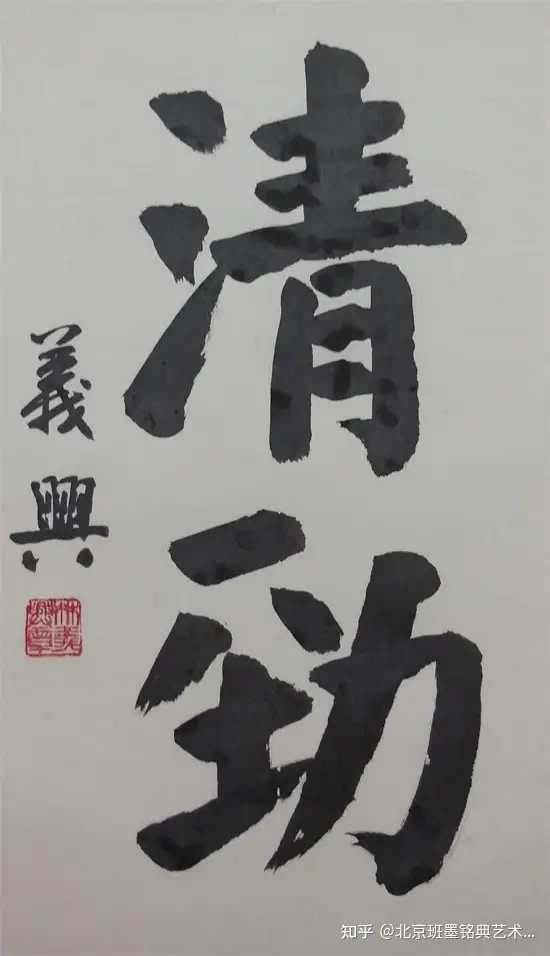 清劲
義興
知乎 @北京班墨铭典艺术...